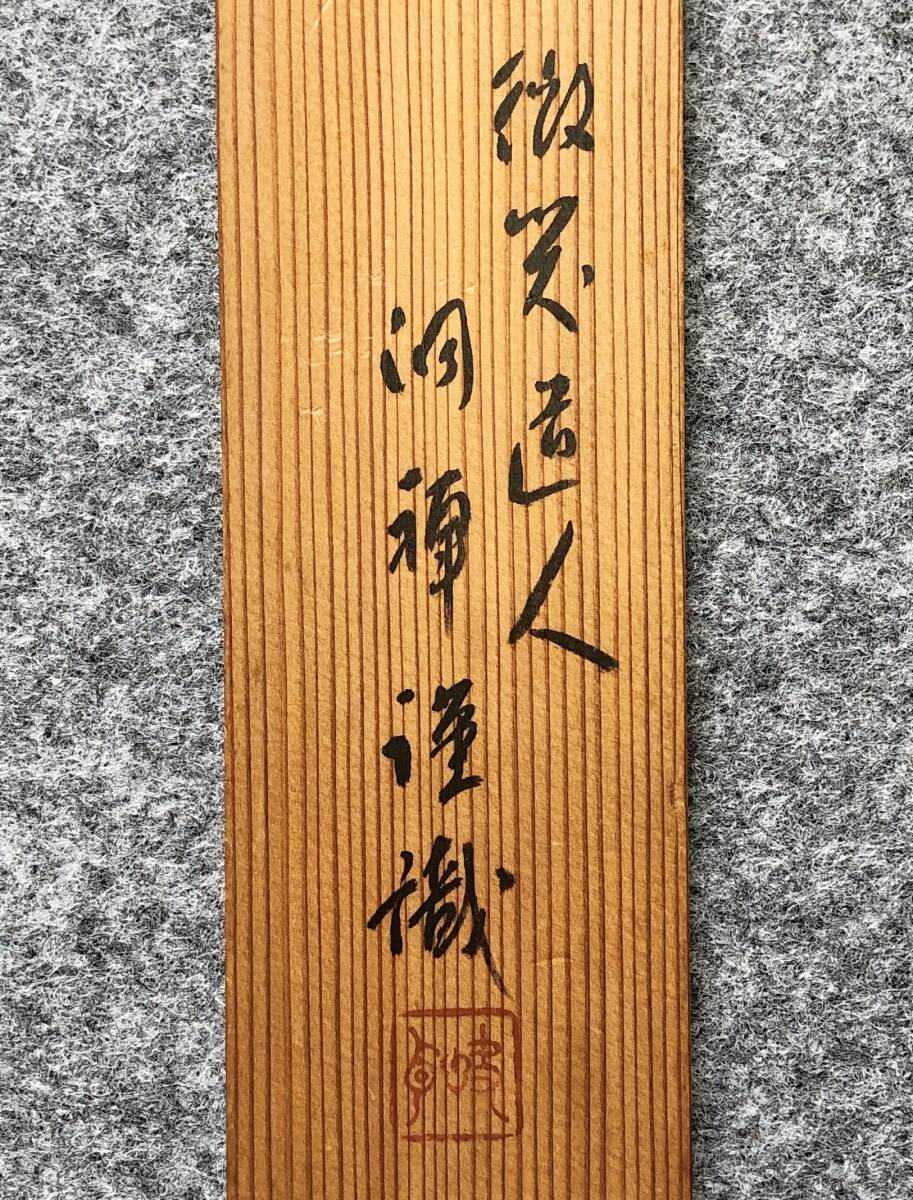 微笑道人
洞禅謹識